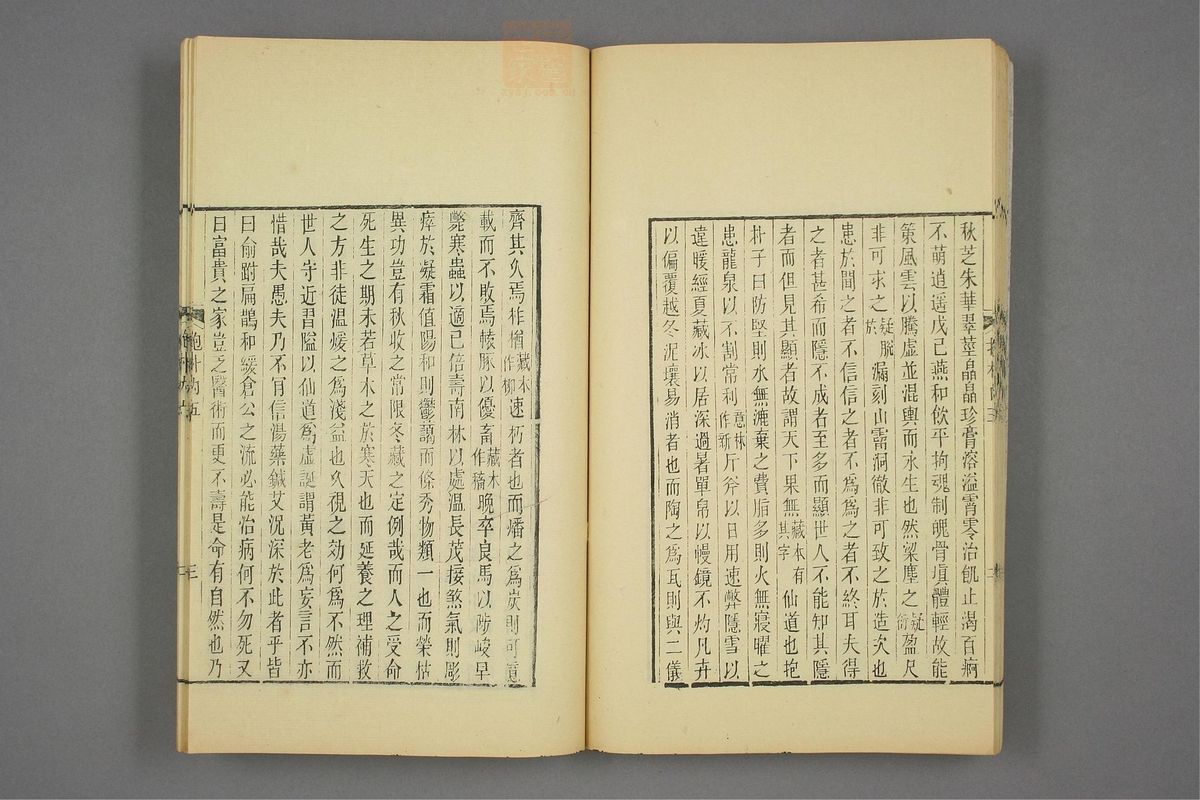 秋芝朱華翠莖晶晶珍膏溶溢霄零治飢止渴百痾
不萌逍遥戊己燕和飲平拘魂制魄骨塡體輕故能
策風雲以騰虛並混輿而永生也然梁塵之疑衍盈尺
非可求之疑脫於漏刻山霤洞徹非可致之於造次也
患於聞之者不信信之者不爲爲之者不終耳夫得
之者甚希而隱不成者至多而顯世人不能知其隱
者而但見其顯者故謂天下果無藏本有其字仙道也抱
朴子曰防堅則水無漉棄之費脂多則火無寢曜之
患龍泉以不割常利意林作新斤斧以日用速弊隱雪以
違暖經夏藏冰以居深過暑單帛以幔鏡不灼凡卉
以偏覆越冬泥壤易消者也而陶之爲瓦則與二儀
齊其久焉柞楢藏本作柳速朽者也而燔之爲炭則可億
載而不敗焉轅豚以優畜藏本作稸晚卒良馬以陟峻早
斃寒蟲以適己倍壽南林以處温長茂接煞氣則彫
瘁於凝霜值陽和則鬱藹而條秀物類一也而榮枯
異功豈有秋收之常限冬藏之定例哉而人之受命
死生之期未若草木之於寒天也而延養之理補救
之方非徒温煖之爲淺益也久視之効何爲不然而
世人守近習隘以仙道爲虛誕謂黃老爲妄言不亦
惜哉夫愚夫乃不肯信湯藥鍼艾況深於此者乎皆
曰俞跗扁鵲和緩倉公之流必能治病何不勿死又
曰富貴之家豈乏醫術而更不壽是命有自然也乃
抱朴内五
三